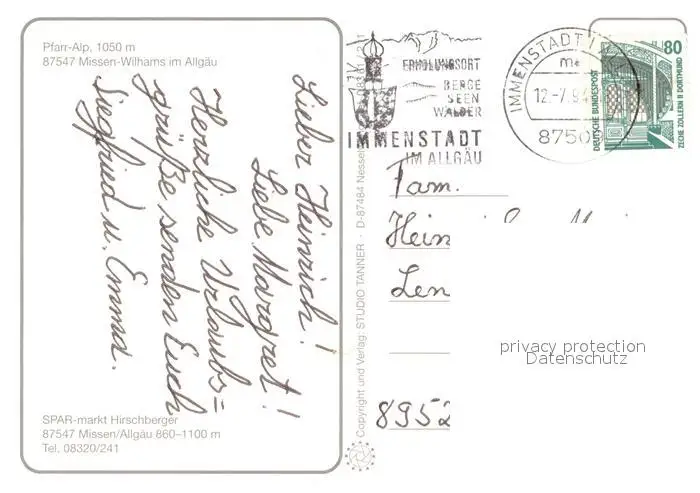 Pfarr-Alp, 1050 m
87547 Missen-Wilhams im Allgäu
Lieber Heinrich!
Liebe Margret!
Herzliche Urlaubs=
grüße senden Euch
Siegfried u. Emma.
SPAR-markt Hirschberger
87547 Missen/Allgäu 860–1100 m
Tel, 08320/241
Copyright und Verlag: STUDIO TANNER · D-87484 Nessel
ERHOLUNGSORT
BERGE
SEEN
WÄLDER
IMMENSTADT
IM ALLGÄU
IMMENSTADT
12.-7.94
8750
80
DEUTSCHE BUNDESPOST
ZECHE ZOLLERN II DORTMUND
Fam.
Hein
Len
8952
privacy protection
Datenschutz